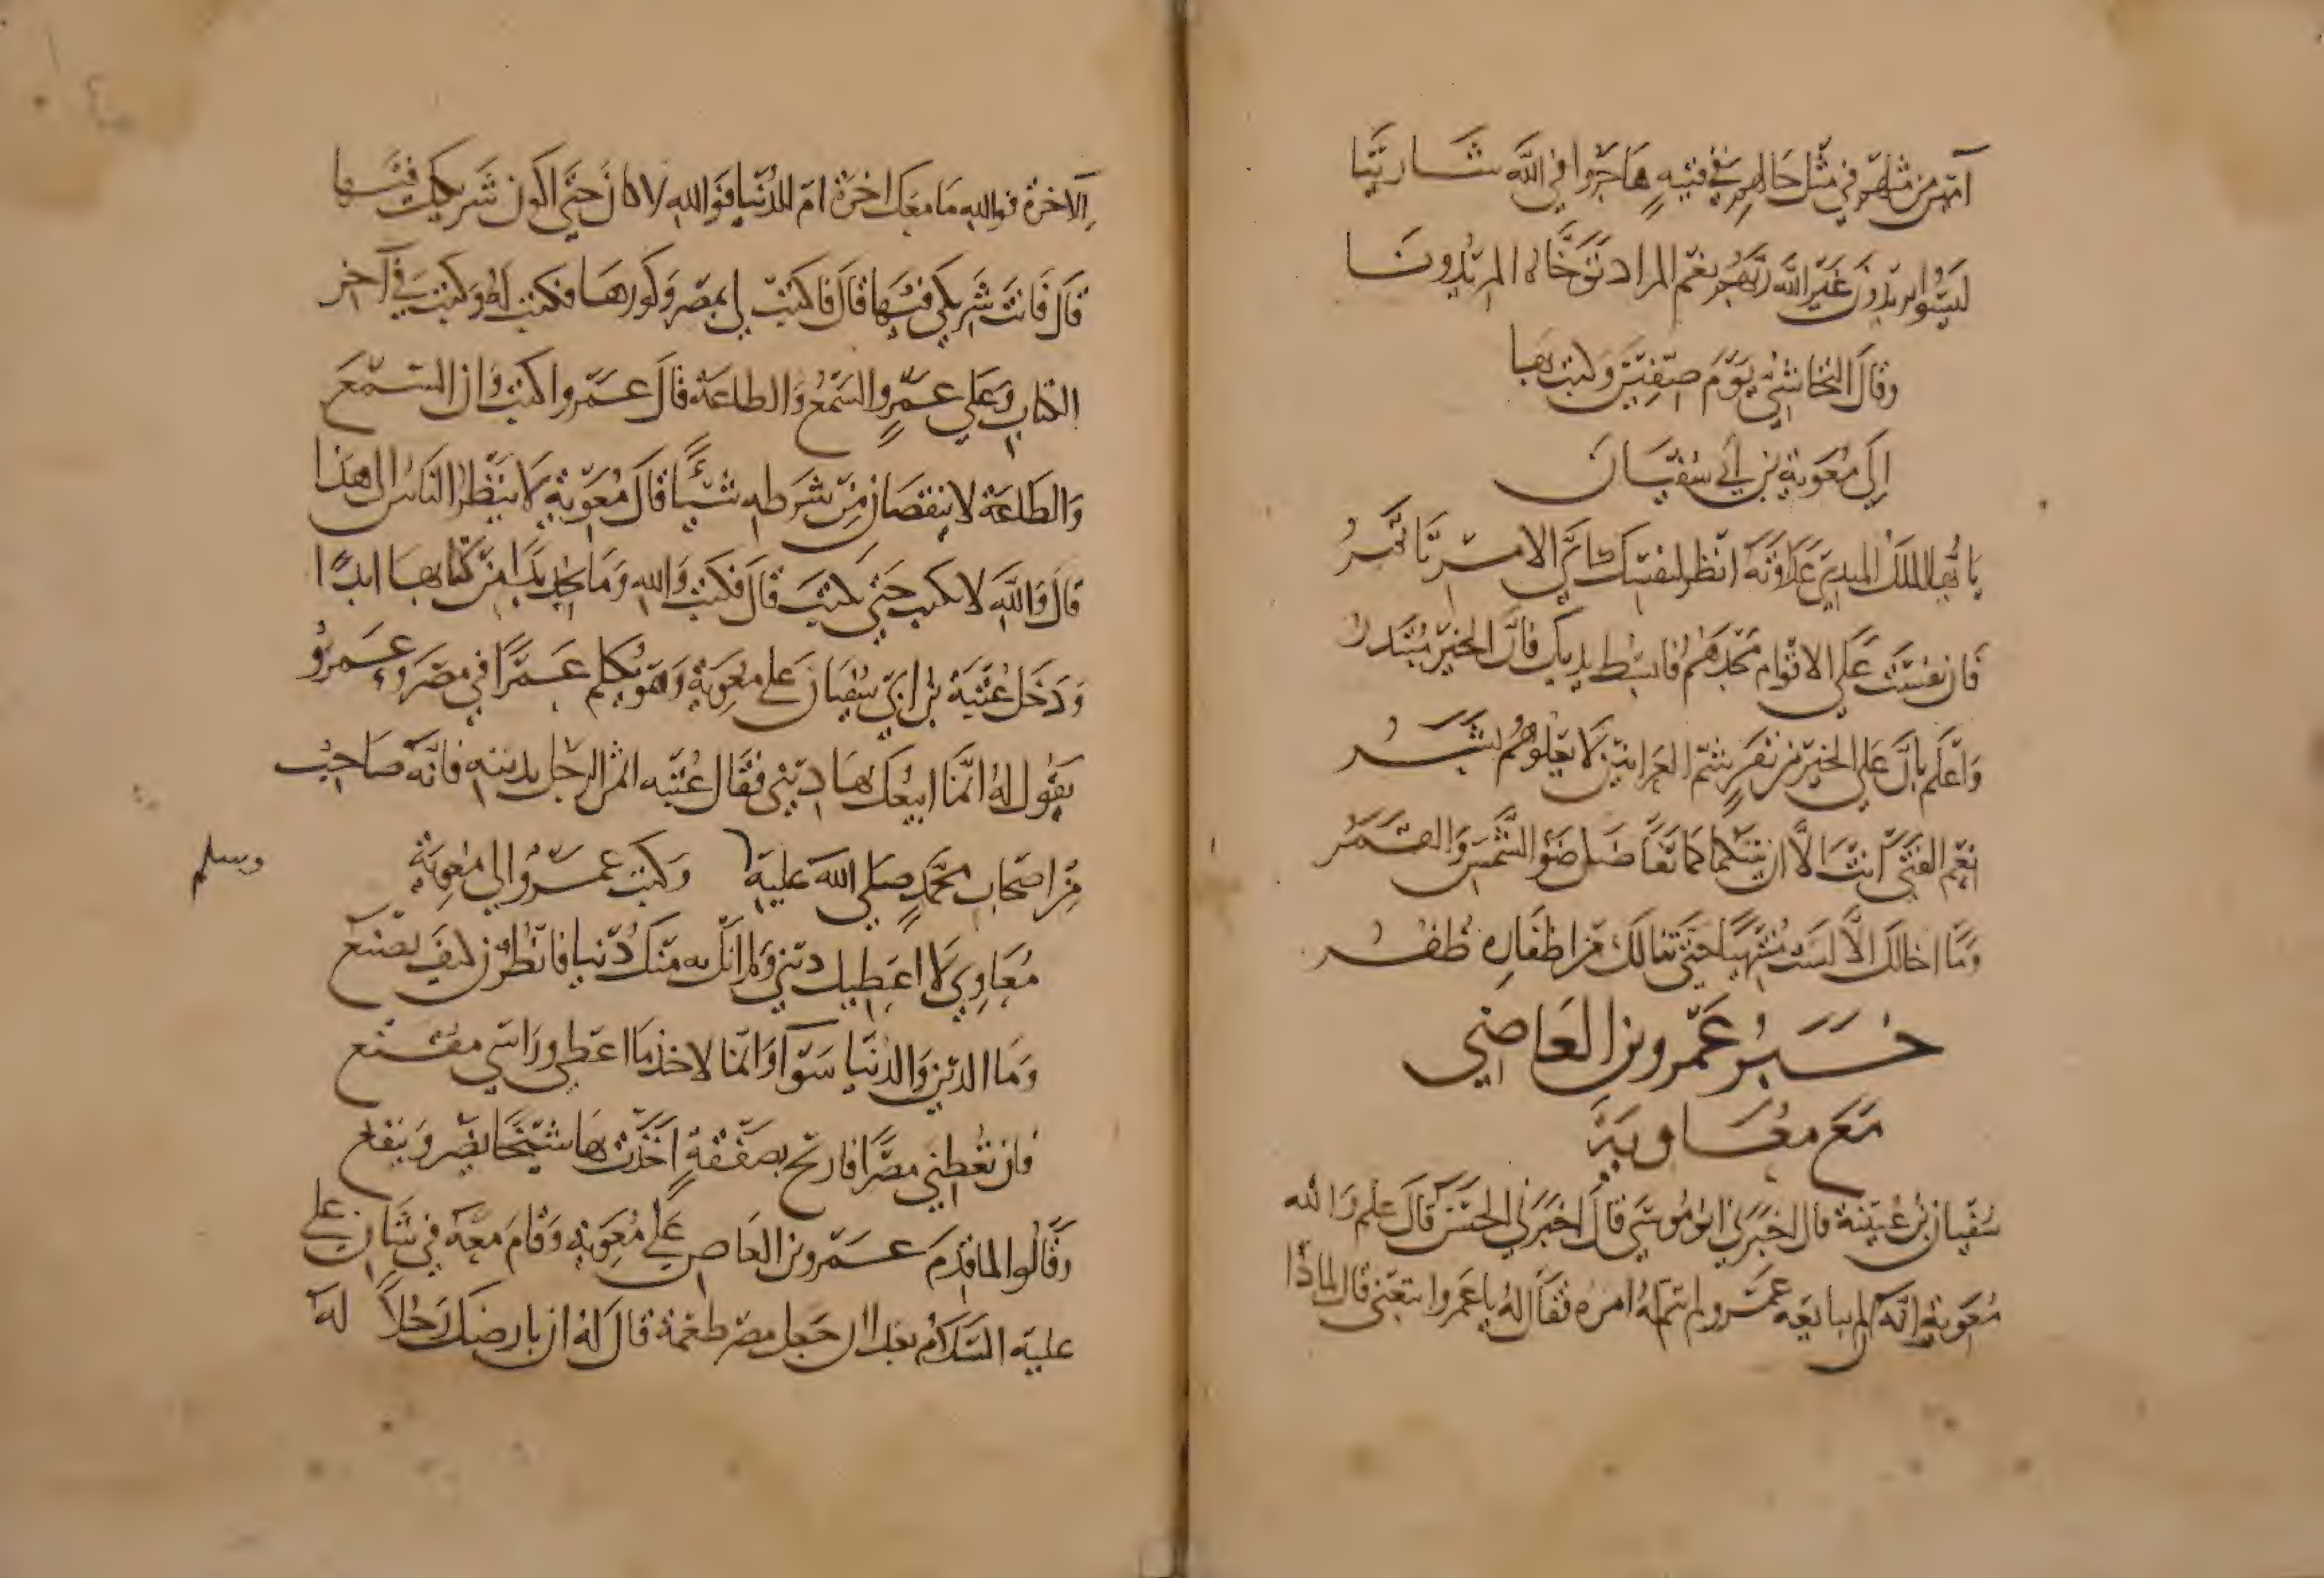 آمنهم من مثلهم في مثل حالهم في فتية هاجروا في الله شاريّنا
ليسوا يريدون غير الله ربهم نعم المراد توخاه المريدونا
وقال النجاشي يوم صفين وكتب بها
إلى معوية بن أبي سفيان
يا أيها الملك المبدي عداوته انظر لنفسك أي الامر تأتمر
فان نفست على الاقوام مجدهم فابسط يديك فان الخير مبتدر
واعلم بان على الخير من نفر شم العرانين لا يعلوهم بشر
نعم الفتى انت الا ان بينكما كما تفاضل ضو الشمس والقمر
وما اخالك الا لست منتهيا حتى تنالك من اظفاره ظفر
خبر عمرو بن العاصي
مع معاوية
سفيان بن عيينة قال اخبرني ابو موسى قال اخبرني الحسن قال علم والله
معوية انه لم يبايعه عمرو لم يتم له امره فقال له يا عمرو اتبعني قال لماذا
الاخرة فوالله ما معك اخرة ام للدنيا فوالله لا كان حتى اكون شريكك فيها
قال فانت شريكي فيها قال فاكتب لي بمصر وكورها فكتب له وكتب في آخر
الكتاب وعلى عمرو السمع والطاعة قال عمرو اكتب وان السمع
والطاعة لا ينقصان من شرطه شيئا قال معوية لا ينظر الناس الى هذا
قال والله لا اكتب حتى تكتب قال فكتب والله وما يجد بدا من كتابها ابدا
ودخل عتبة بن ابي سفيان على معوية وهو يكلم عمرا في مصر وعمرو
يقول له انما ابيعك بها ديني فقال عتبه اثمن الرجل بدينه فانه صاحب
من اصحاب محمد صلى الله عليه وسلم وكتب عمرو الى معوية
معاوي لا اعطيك ديني ولم انل به منك دنيا فانظرن كيف تصنع
وما الدين والدنيا سوآ وانما لاخذ ما اعطي وراسي مقنع
فان تعطني مصرا فاربح بصفقة اخذت بها شيخا يضر وينفع
وقالوا لما قدم عمرو بن العاص على معوية وقام معه في شان علي
عليه السلام بعد ان جعل مصر طعمة قال له ان بارضك رجلا له